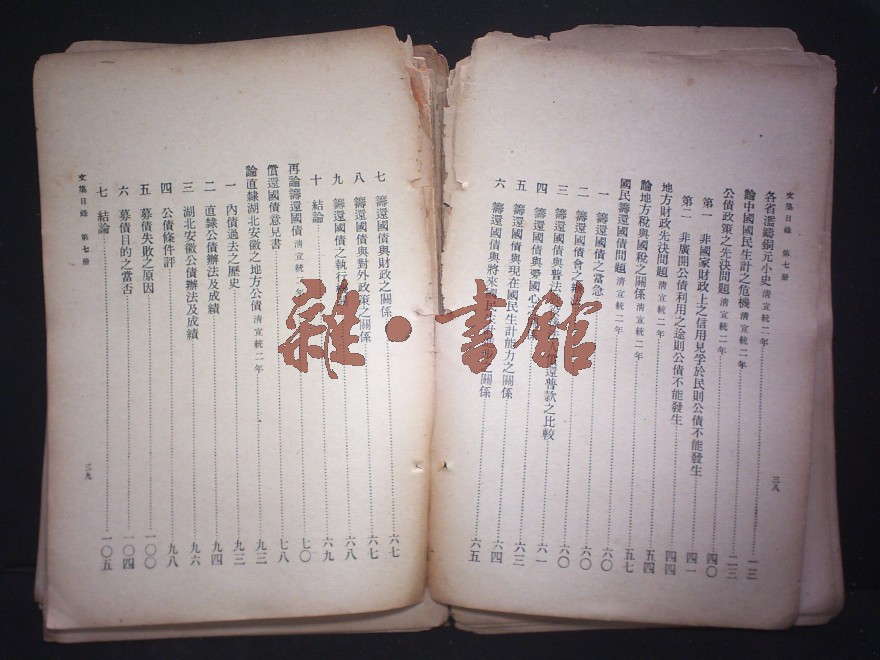 文集目錄 第七册
各省濫鑄銅元小史 清宣統二年 一三
論中國國民生計之危機 清宣統二年 二三
公債政策之先決問題 清宣統二年 四〇
第一 非國家財政上之信用見孚於民則公債不能發生 四一
第二 非廣開公債利用之途則公債不能發生 四四
地方財政先決問題 清宣統二年 四四
論地方稅與國稅之關係 清宣統二年 五四
國民籌還國債問題 清宣統二年 五七
一 籌還國債之當急 六〇
二 籌還國債會之 六〇
三 籌還國債與普法 還普款之比較 六〇
四 籌還國債與愛國心 六一
五 籌還國債與現在國民生計能力之關係 六三
六 籌還國債與將來國民生計 之關係 六四
六五
三八
文集目錄 第七册
七 籌還國債與財政之關係 六七
八 籌還國債與對外政策之關係 六七
九 籌還國債之執行 六八
十 結論 六九
再論籌還國債 清宣統二年 七〇
償還國債意見書 七八
論直隸湖北安徽之地方公債 清宣統二年 九三
一 內債過去之歷史 九三
二 直隸公債辦法及成績 九四
三 湖北安徽公債辦法及成績 九六
四 公債條件評 九八
五 募債失敗之原因 一〇〇
六 募債目的之當否 一〇四
七 結論 一〇五
三九
雜·書館